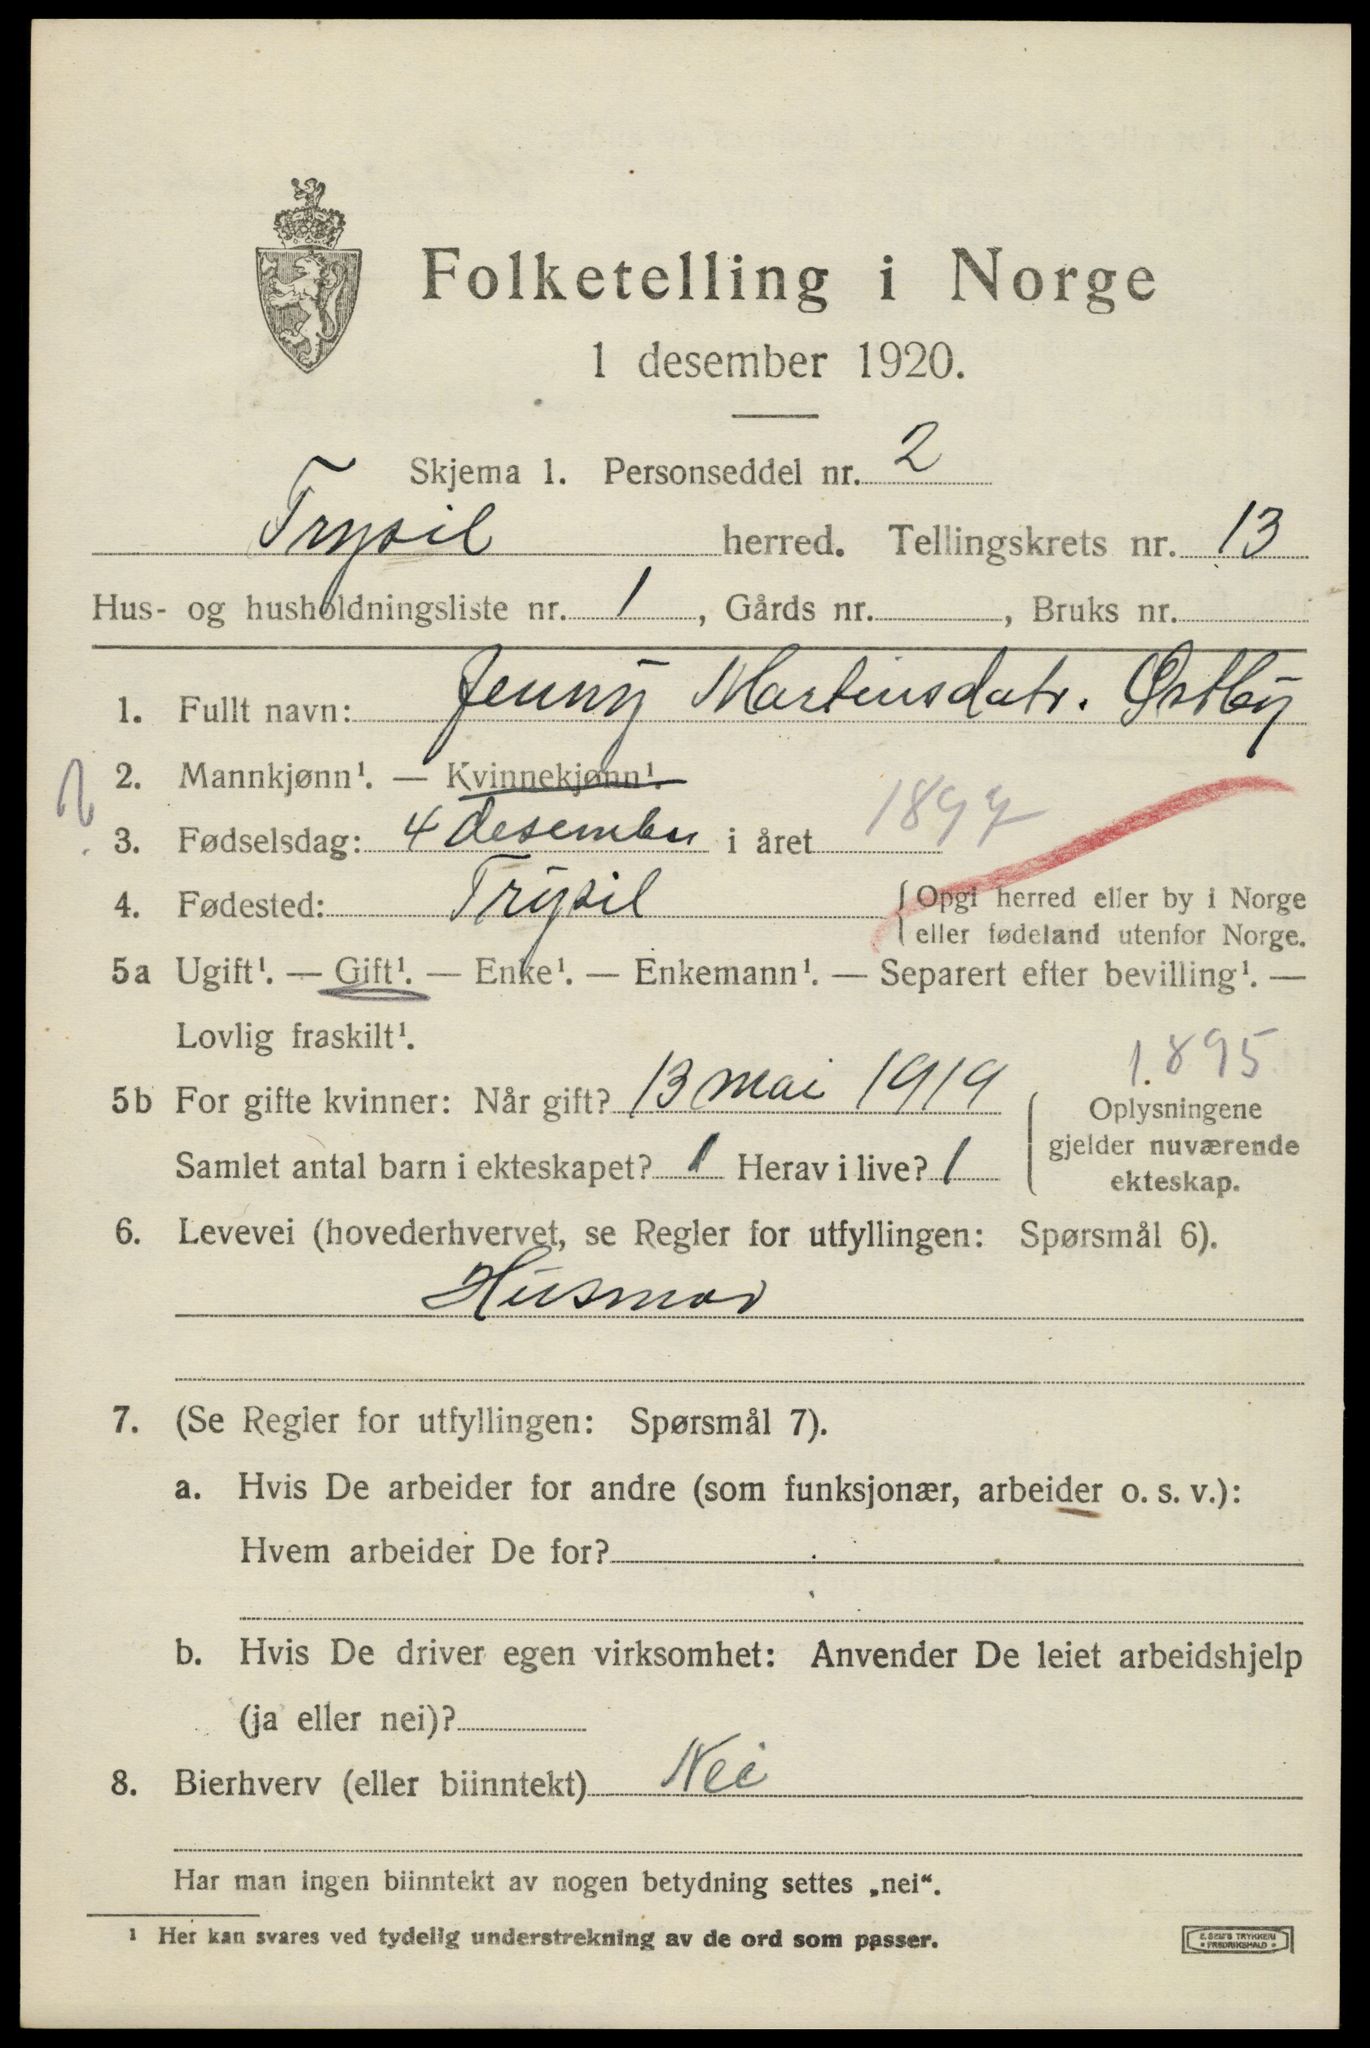 Folketelling i Norge
1 desember 1920.
Skjema 1. Personseddel nr. 2
Trysil herred. Tellingskrets nr. 13
Hus- og husholdningsliste nr. 1, Gårds nr. , Bruks nr.
1. Fullt navn: Jenny Martinsdatr. Østby
2. Mannkjønn¹. — Kvinnekjønn¹.
3. Fødselsdag: 4 desember i året 1897
4. Fødested: Trysil
{ Opgi herred eller by i Norge
eller fødeland utenfor Norge.
5a Ugift¹. — Gift¹. — Enke¹. — Enkemann¹. — Separert efter bevilling¹. —
Lovlig fraskilt¹.
1895
5b For gifte kvinner: Når gift? 13 mai 1919
Samlet antal barn i ekteskapet? 1 Herav i live? 1
Oplysningene
gjelder nuværende
ekteskap.
6. Levevei (hovederhvervet, se Regler for utfyllingen: Spørsmål 6).
Husmor
7. (Se Regler for utfyllingen: Spørsmål 7).
a. Hvis De arbeider for andre (som funksjonær, arbeider o. s. v.):
Hvem arbeider De for?
b. Hvis De driver egen virksomhet: Anvender De leiet arbeidshjelp
(ja eller nei)?
8. Bierhverv (eller biinntekt) Nei
Har man ingen biinntekt av nogen betydning settes „nei“.
¹ Her kan svares ved tydelig understrekning av de ord som passer.
E. SEM'S TRYKKERI
• FREDRIKSHALD •